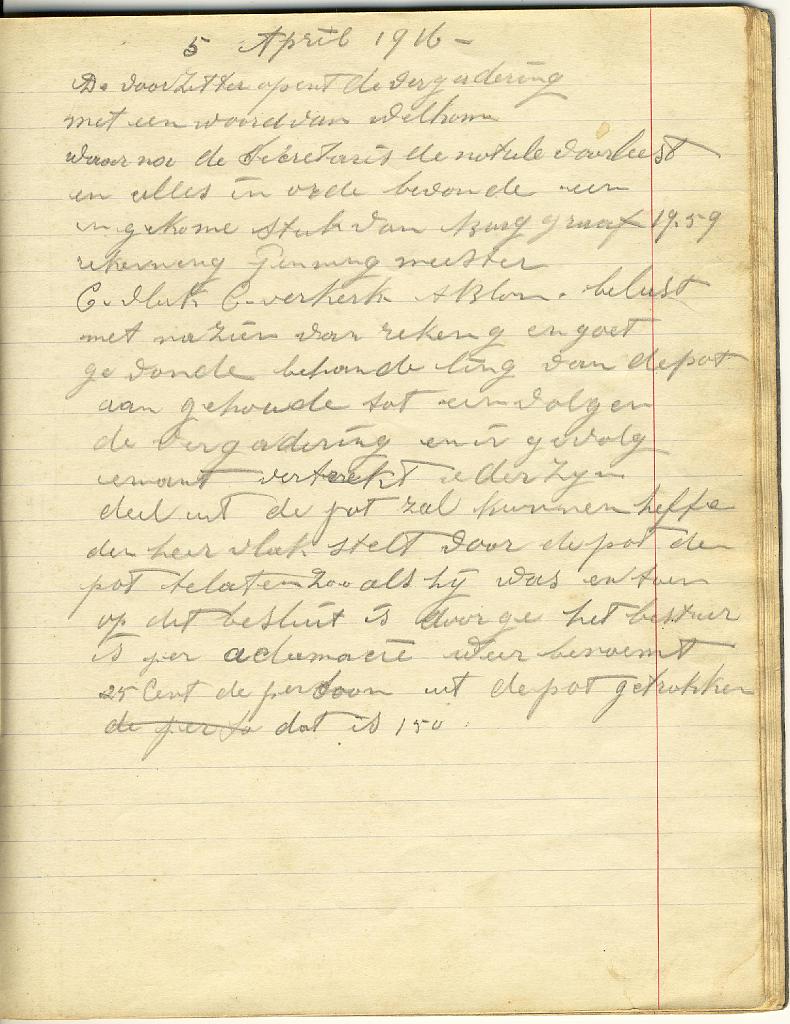 5 April 1916 -
De voorzitter opent de vergadering
met een woord van welkom
waar na de Secretaris de notule voorleest
en alles in orde bevonde een
in gekome stuk van Burg graaf 19.59
rekenneng Penning meester
C. Vlak C. verkerk A Blom. belast
met nazien van rekeng en goet
ge vonde behande ling van depot
aan gehoude tot een volgen
de vergadering en in gevolg
iemant vertrekt ieder zyn
deel uit de pot zal kunnen heffe
den heer vlak stelt voor de pot de
pot te laten zoo als hij was en toen
op dit besluit is doorge het bestuur
is per aclamacie weer benoemt
25 Cent de persoon uit depot getrokken
de perso dat is 150